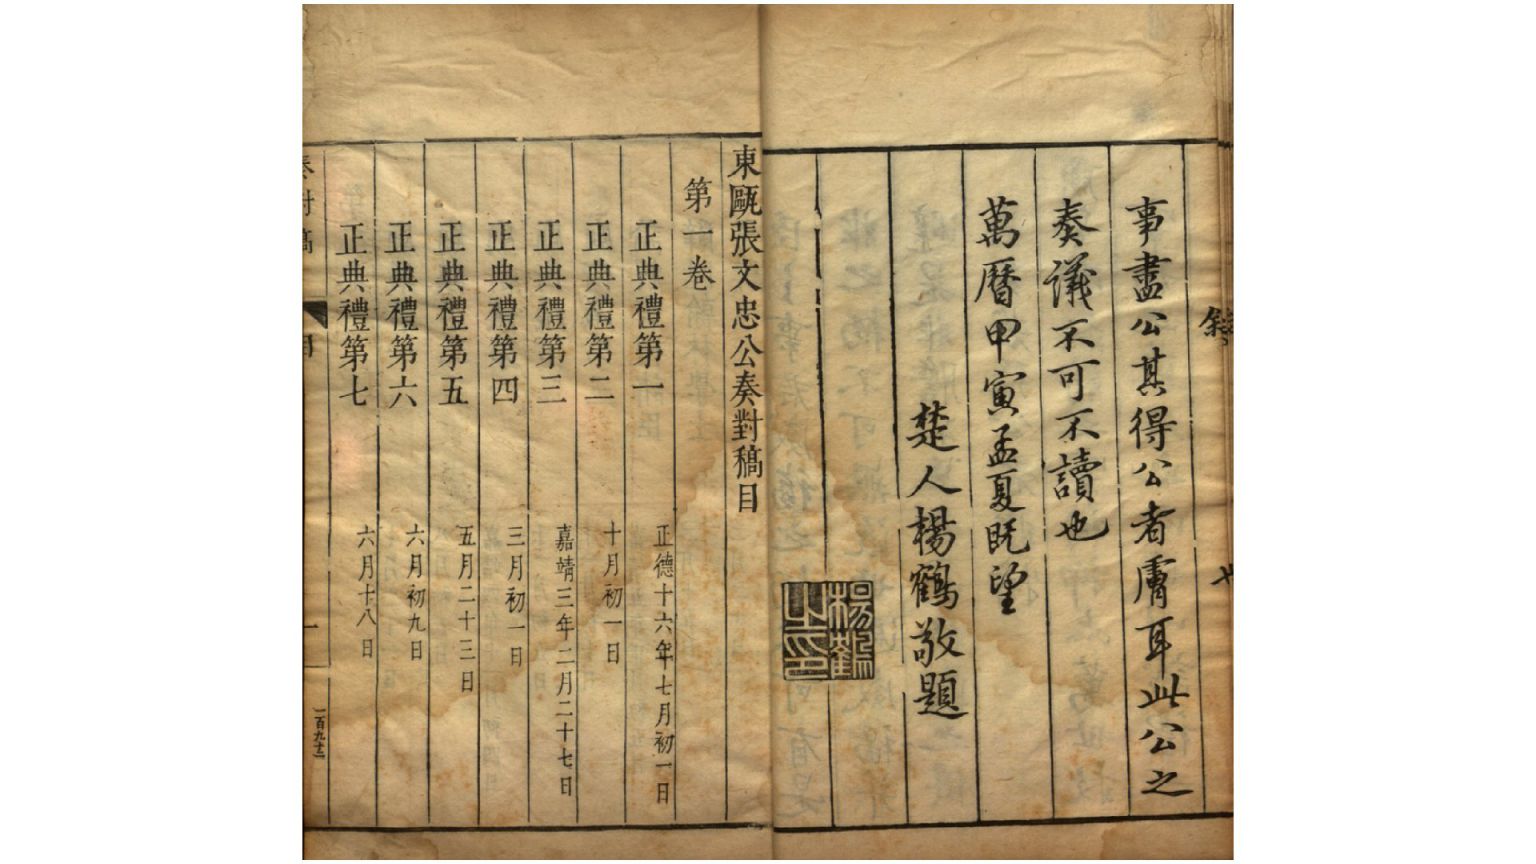 事盡公其得公者膚耳此公之
奏議不可不讀也
萬曆甲寅孟夏既望
楚人楊鶴敬題
楊鶴之印
東甌張文忠公奏對稿目
第一卷
正典禮第一 正德十六年七月初一日
正典禮第二 十月初一日
正典禮第三 嘉靖三年二月二十七日
正典禮第四 三月初一日
正典禮第五 五月二十三日
正典禮第六 六月初九日
正典禮第七 六月十八日
奏對稿 目 一